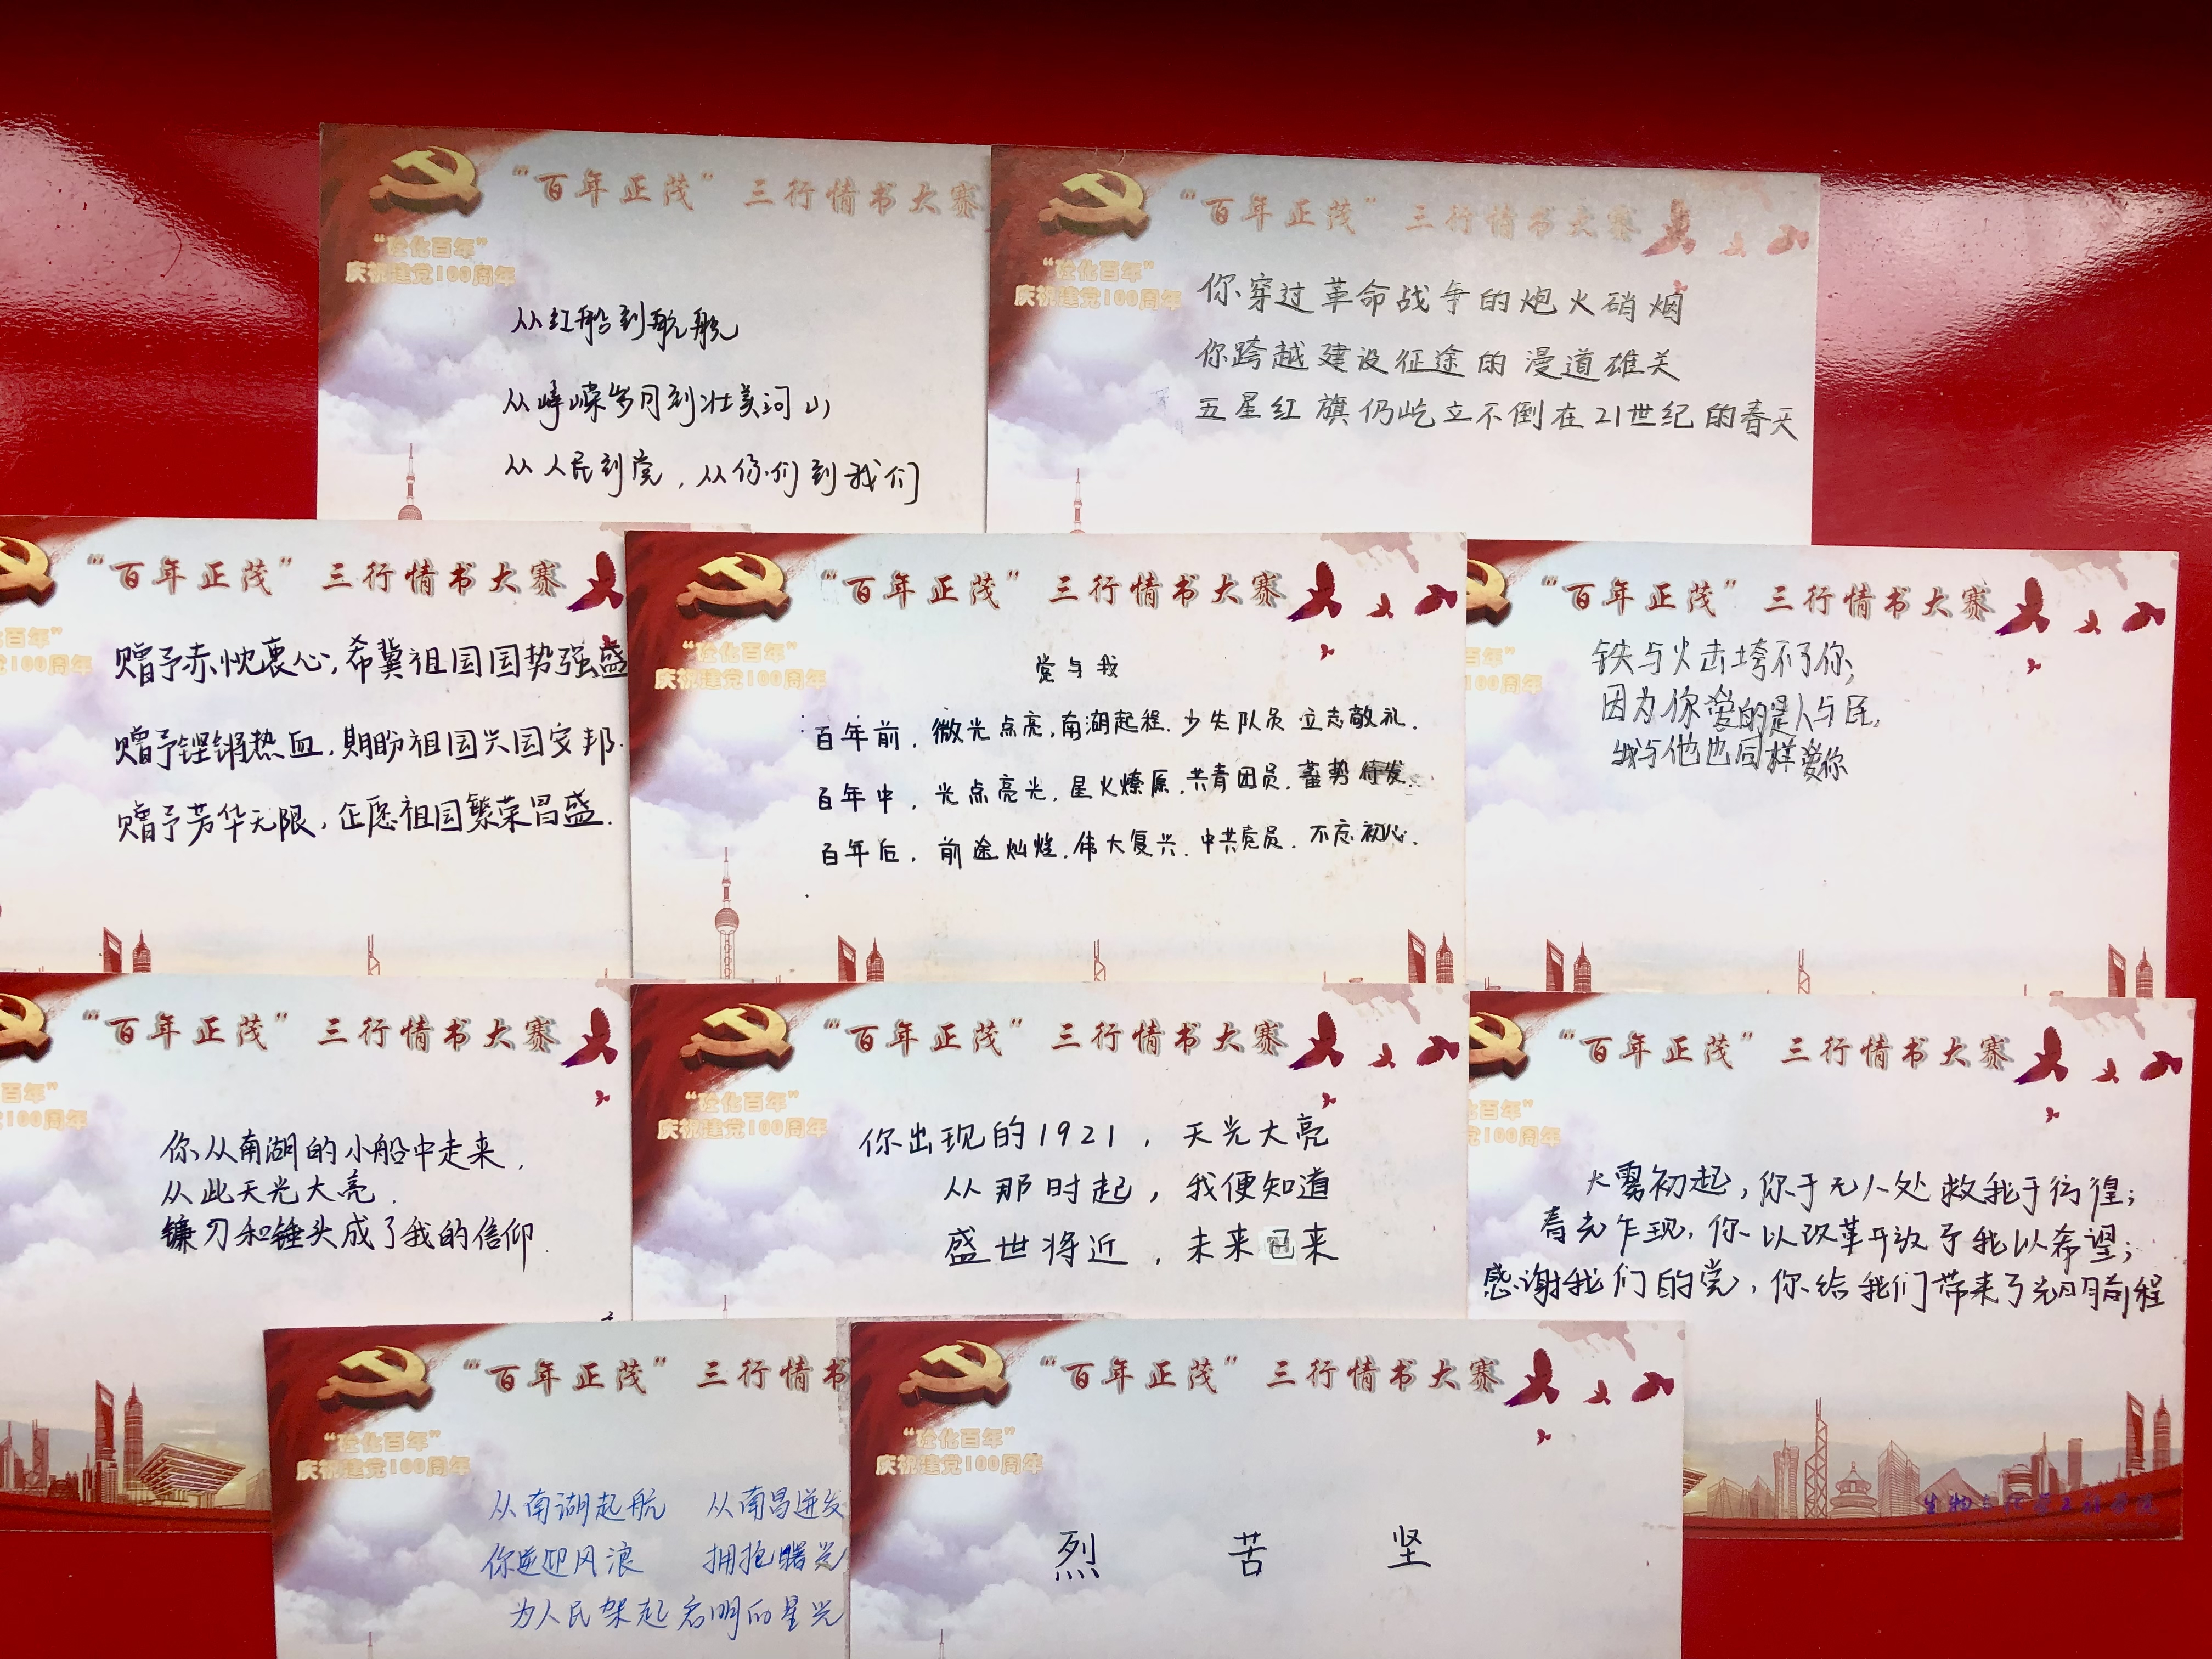 “百年正茂”三行情书大赛
“砼化百年”
庆祝建党100周年
从红船到航舰
从峥嵘岁月到壮美河山
从人民到党，从你们到我们
“百年正茂”三行情书大赛
“砼化百年”
庆祝建党100周年
你穿过革命战争的炮火硝烟
你跨越建设征途的漫道雄关
五星红旗仍屹立不倒在21世纪的春天
“百年正茂”三行情书大赛
百年”
100周年
赠予赤忱衷心，希冀祖国国势强盛
赠予铿锵热血，期盼祖国兴国安邦.
赠予芳华无限，企愿祖国繁荣昌盛.
“百年正茂”三行情书大赛
“砼化百年”
庆祝建党100周年
党与我
百年前，微光点亮，南湖起程.少先队员立志敬礼.
百年中，光点亮光，星火燎原.共青团员，蓄势待发.
百年后，前途灿烂.伟大复兴.中共党员.不忘初心.
“百年正茂”三行情书大赛
百年”
100周年
铁与火击垮不了你，
因为你爱的是人与民，
我与他也同样爱你
“百年正茂”三行情书大赛
百年”
100周年
你从南湖的小船中走来，
从此天光大亮.
镰刀和锤头成了我的信仰.
“百年正茂”三行情书大赛
“砼化百年”
庆祝建党100周年
你出现的1921，天光大亮
从那时起，我便知道
盛世将近，未来已来
“百年正茂”三行情书大赛
百年”
100周年
大雾初起，你于无人处救我于彷徨；
春光乍现，你以改革开放予我以希望；
感谢我们的党，你给我们带来了光明前程
生物与化学工程学院
“百年正茂”三行情书
“砼化百年”
庆祝建党100周年
从南湖起航 从南昌迸发
你逆迎风浪 拥抱曙光
为人民架起启明的星光
“百年正茂”三行情书大赛
“砼化百年”
庆祝建党100周年
烈 苦 坚